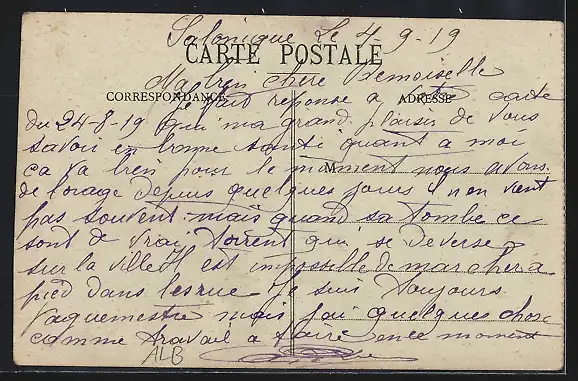 Salonique Le 4-9-19
CARTE POSTALE
Ma bien chere Demoiselle
CORRESPONDANCE
ADRESSE
Je fait reponse a votre carte
du 24-8-19 qui ma grand plaisir de vous
savoir en bonne santé quant a moi
ça va bien pour le moment nous avons
M
de l'orage depuis quelques jours il n'en vient
pas souvent mais quand sa tombe ce
sont de vrai torrent qui se deverse
sur la ville il est impossible de marcher a
pied dans les rue je suis toujours
vaguemestre mais j'ai quelques chose
comme travail a faire en ce moment
ALB